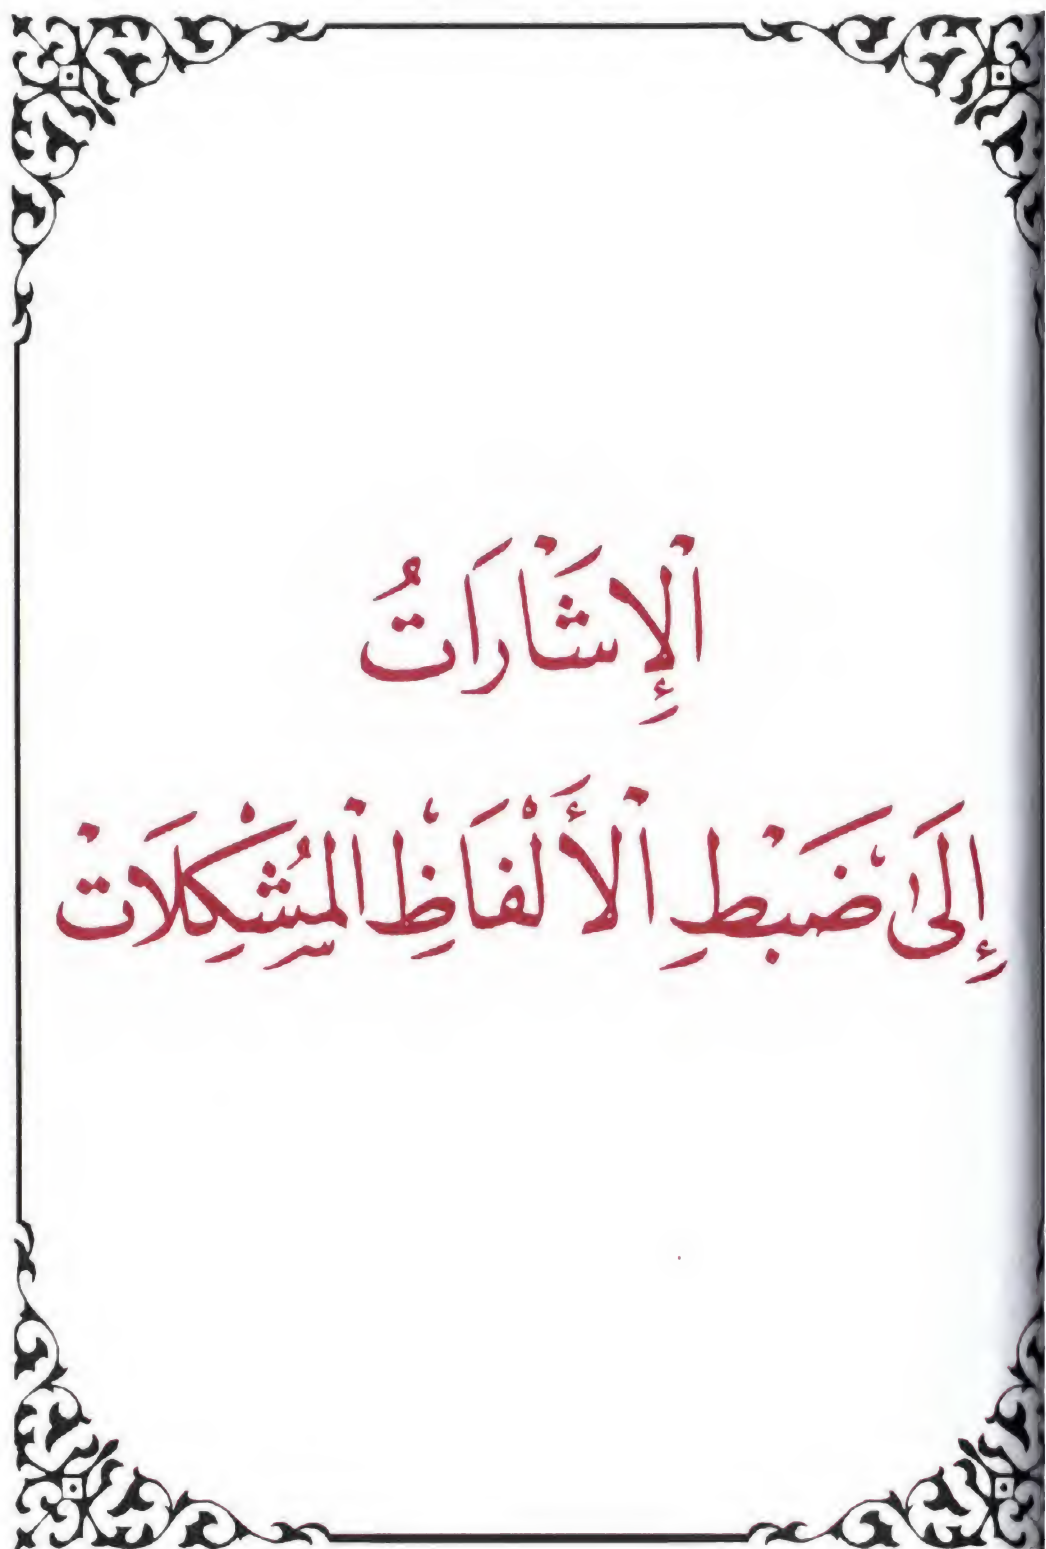 ٱلْإِشَارَاتُ
إِلَىٰ ضَبْطِ ٱلْأَلْفَاظِ ٱلْمُشْكِلَاتْ